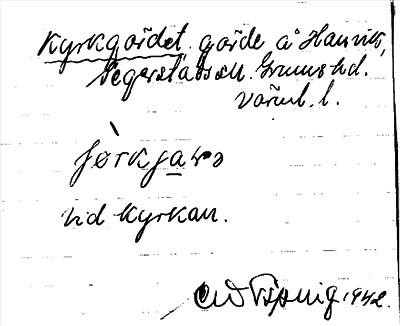 Kyrkgärdet. gärde å Hanvik,
Segerstads sn. Grums hd.
Värml. l.
jørkjaṟə
vid kyrkan.
1942.